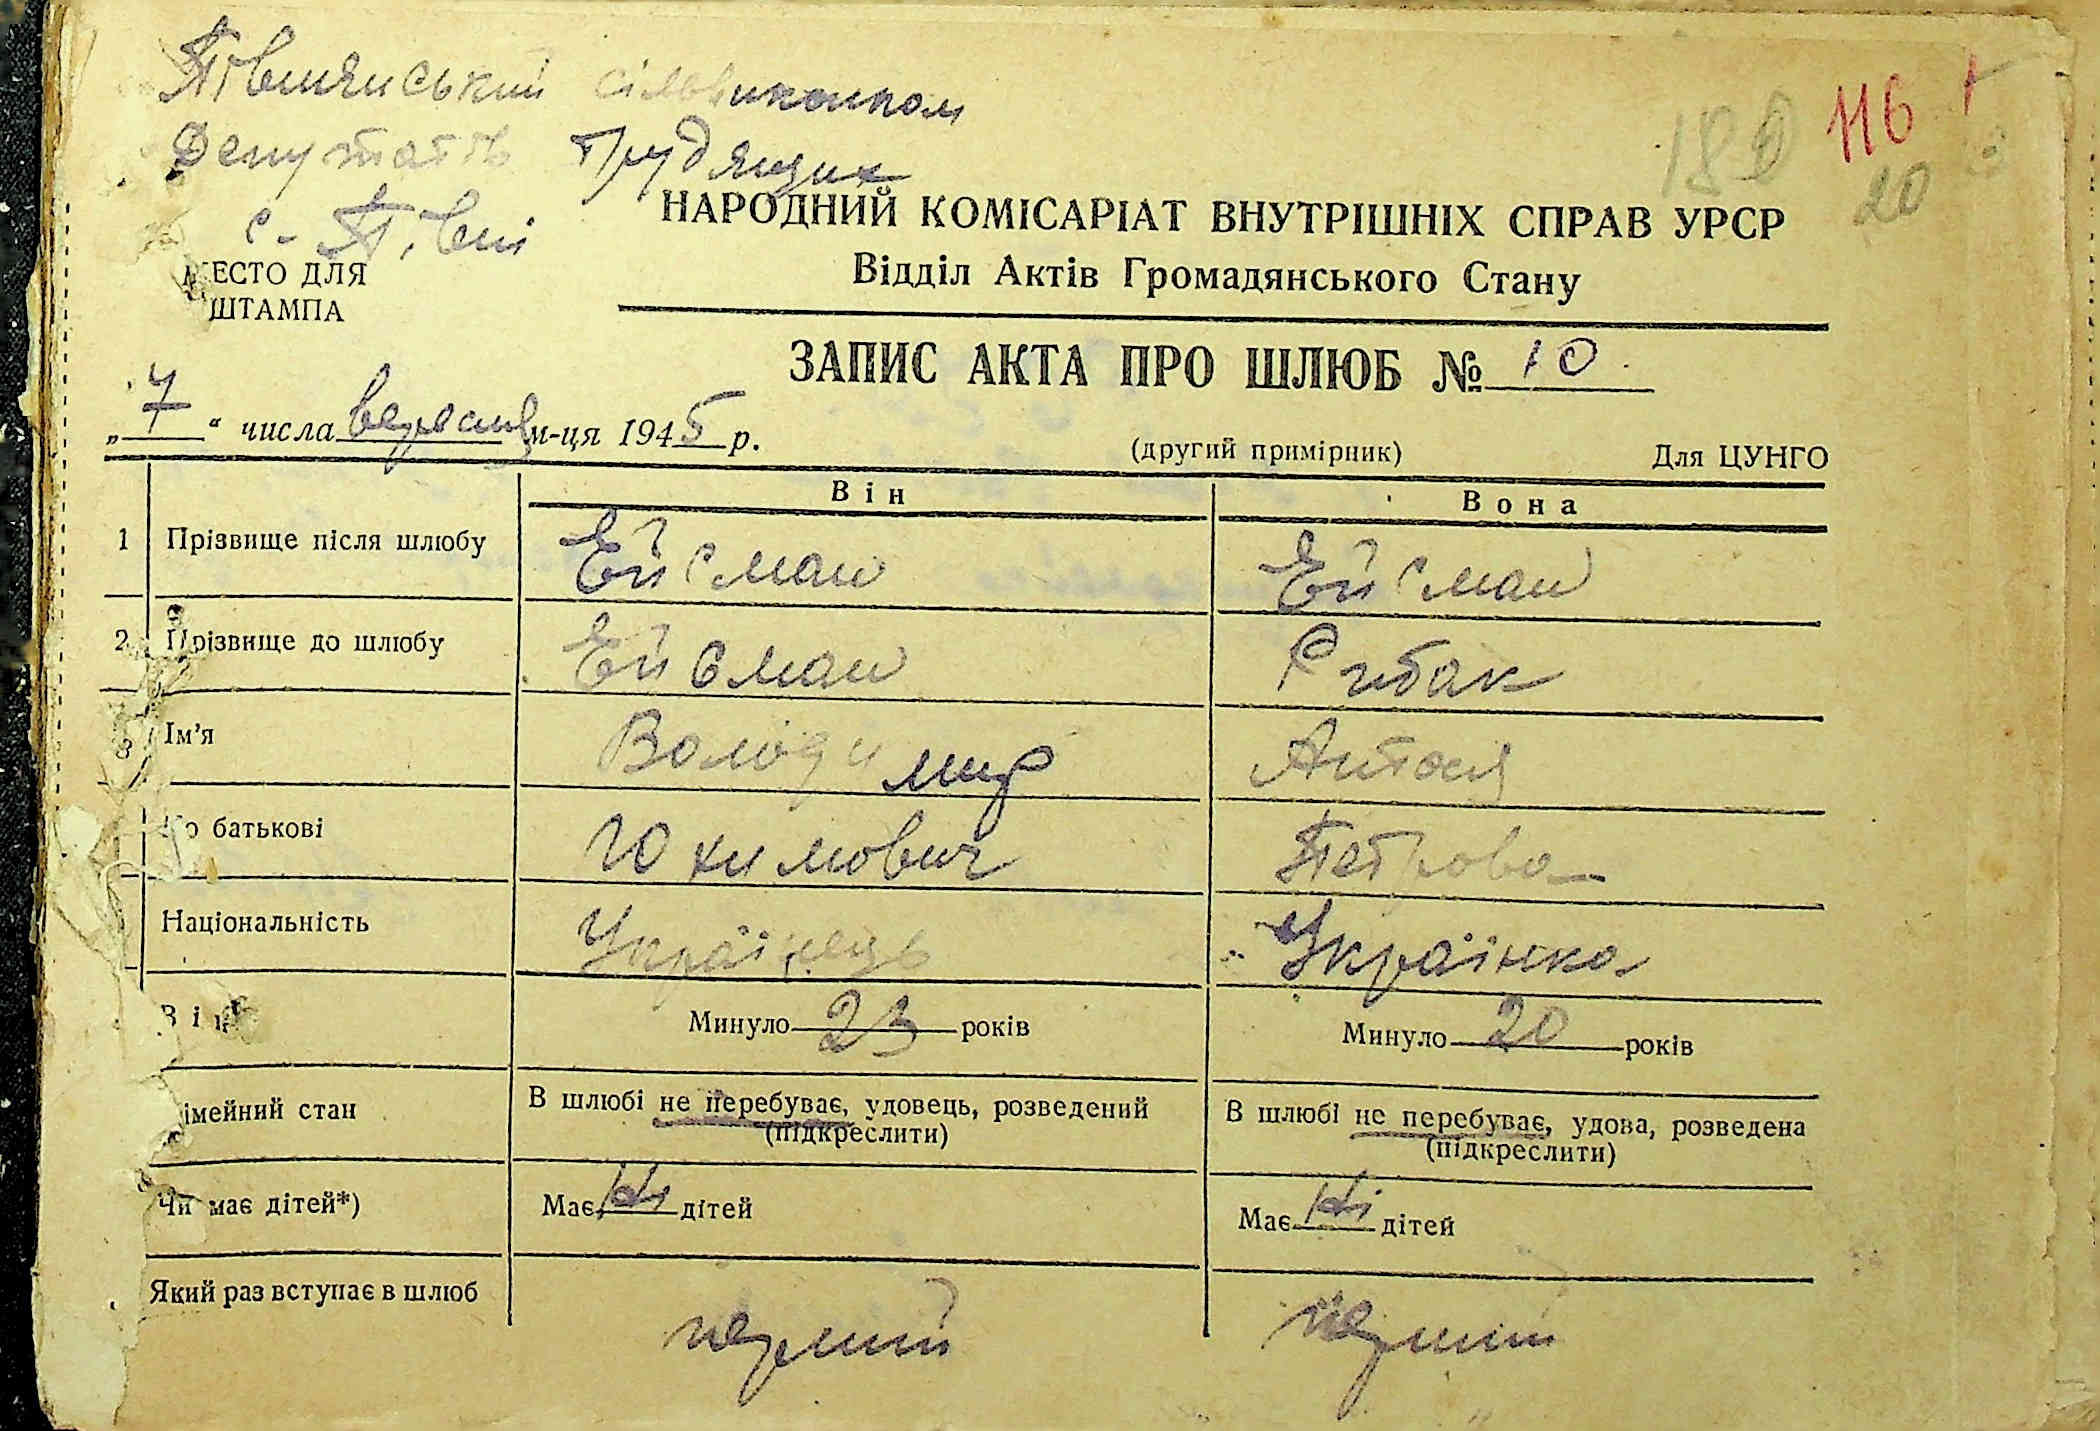 Півнянський сільвиконком
Депутатів Трудящих
с. Півні
МЕСТО ДЛЯ
ШТАМПА
116
180
20
НАРОДНИЙ КОМІСАРІАТ ВНУТРІШНІХ СПРАВ УРСР
Відділ Актів Громадянського Стану
ЗАПИС АКТА ПРО ШЛЮБ № 10
„7“ числа вересня м-ця 1945 р.
(другий примірник) Для ЦУНГО
Він Вона
1 Прізвище після шлюбу Ейсман Ейсман
2 Прізвище до шлюбу Ейсман Рибак
3 Ім'я Володимир Антося
По батькові Юхимович Петрова
Національність Українець Українка
Вік Минуло 23 років Минуло 20 років
імейний стан В шлюбі не перебуває, удовець, розведений В шлюбі не перебуває, удова, розведена
(підкреслити) (підкреслити)
Чи має дітей*) Має Ні дітей Має Ні дітей
Який раз вступає в шлюб перший перший